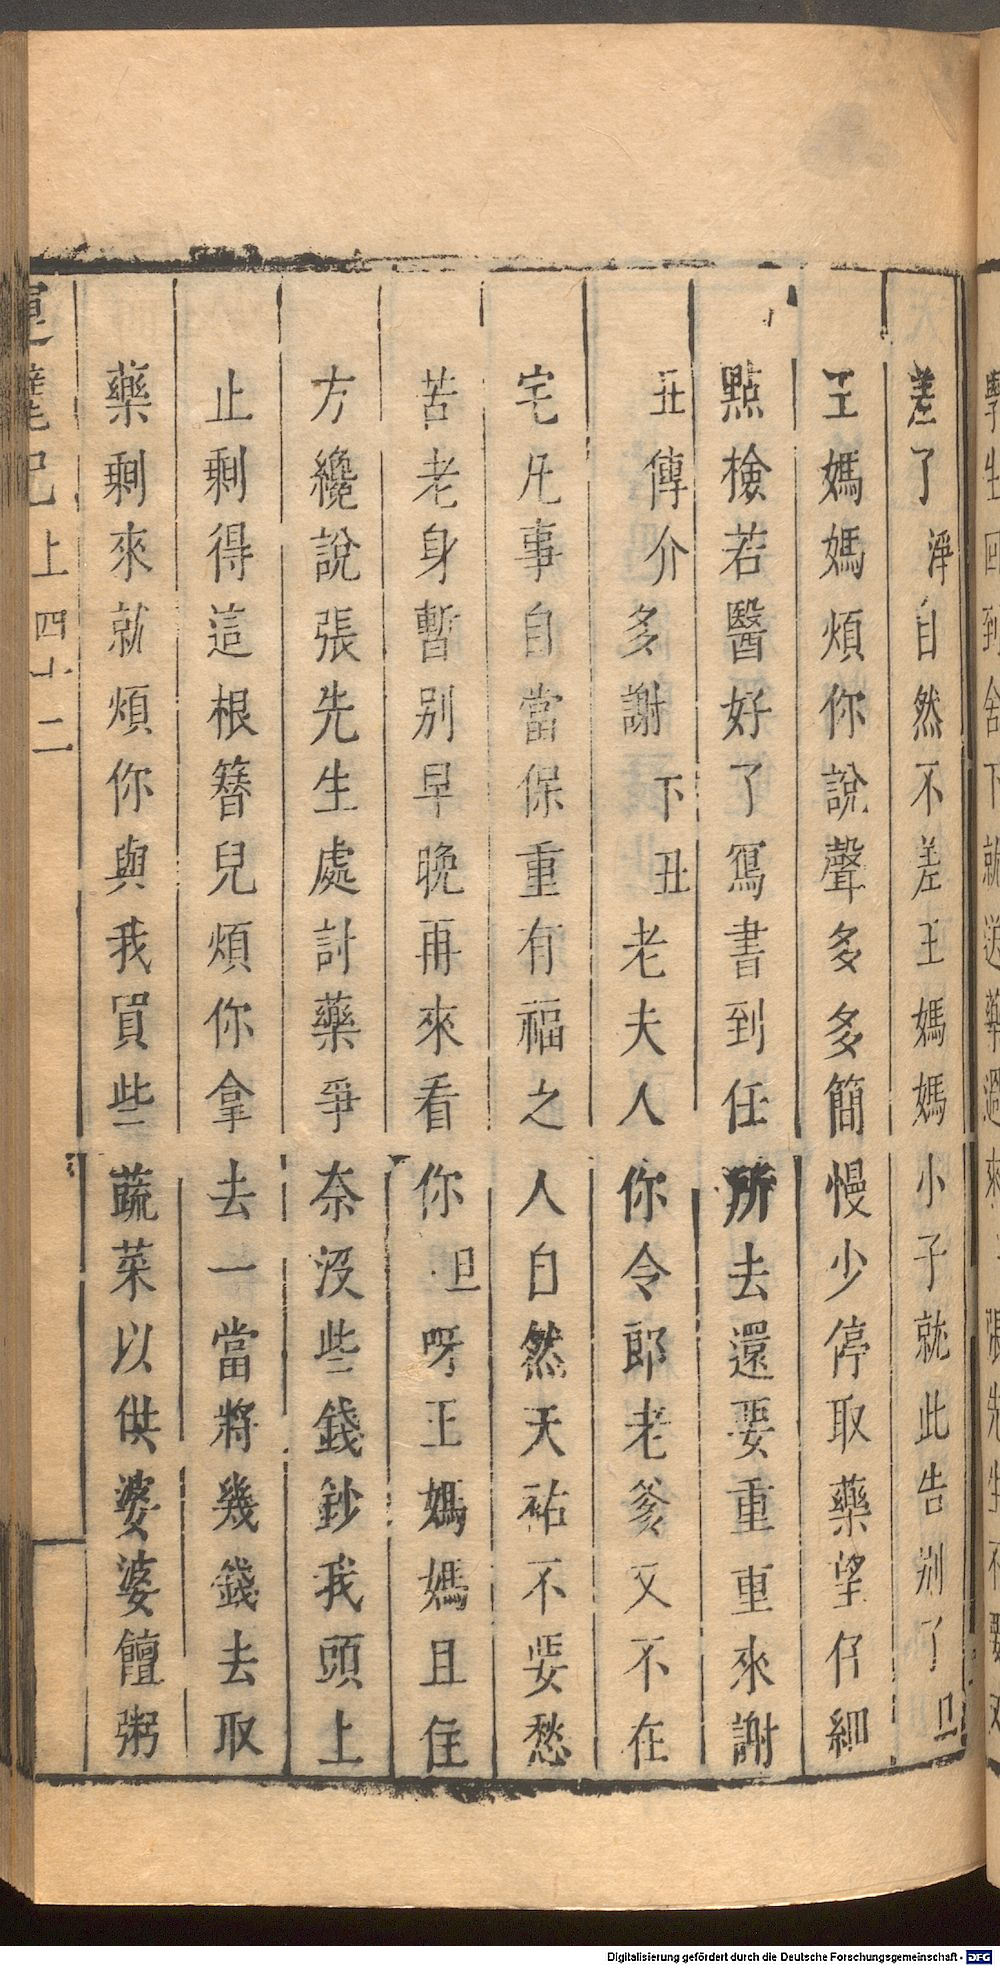 差了淨自然不差王媽媽小子就此告別了旦
王媽媽煩你說聲多多簡慢少停取藥望仔細
點檢若醫好了寫書到任所去還要重重來謝
丑傳介多謝下丑老夫人你令郎老爹又不在
宅凡事自當保重有福之人自然天祐不要愁
苦老身暫別早晚再來看你旦呀王媽媽且住
方纔說張先生處討藥爭奈沒些錢鈔我頭上
止剩得這根簪兒煩你拿去一當將幾錢去取
藥剩來就煩你與我買些蔬菜以供婆婆饘粥
記上四十二
Digitalisierung gefördert durch die Deutsche Forschungsgemeinschaft - DFG